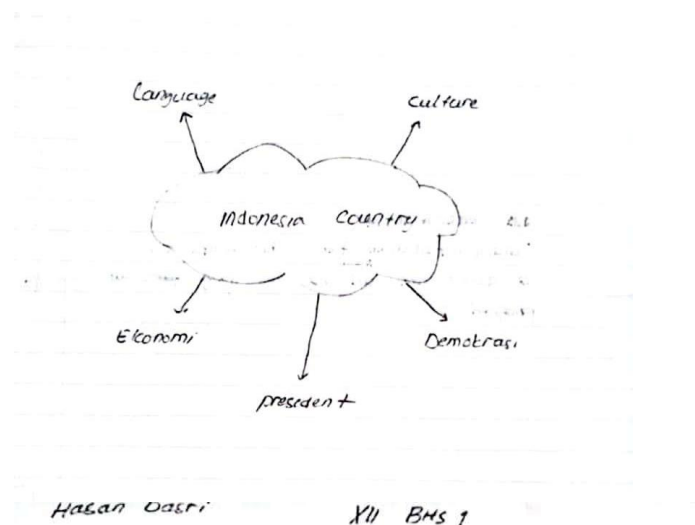 Language
Culture
Indonesia Country
Ekonomi
Demokrasi
president
Hasan Basri
XII BHS 1